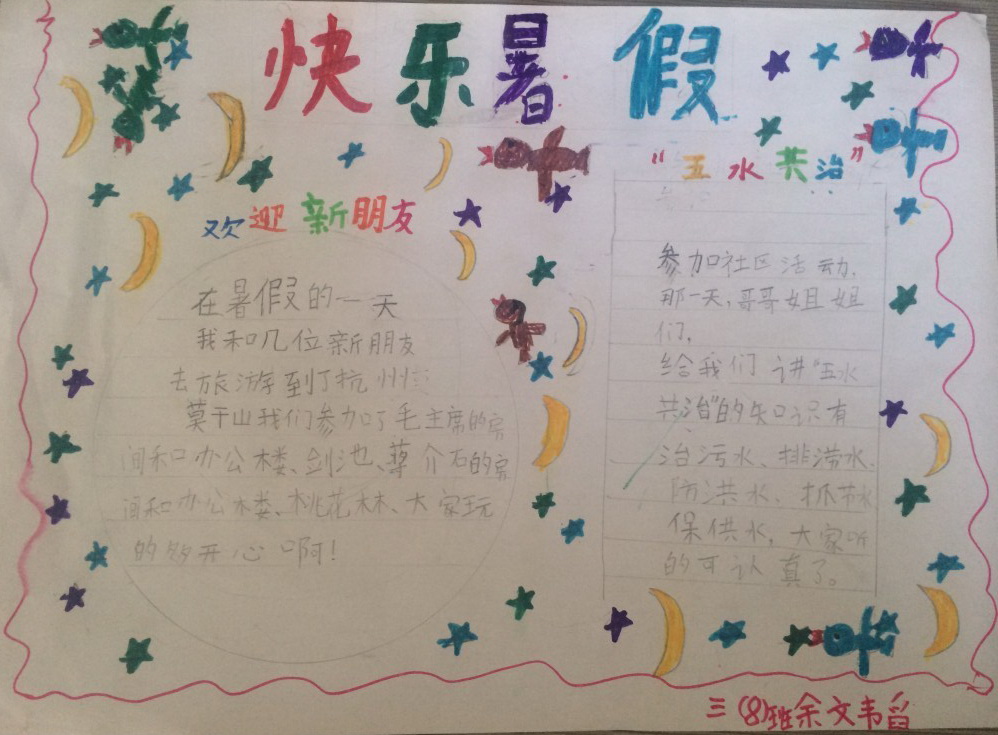 快乐暑假
欢迎新朋友
在暑假的一天
我和几位新朋友
去旅游到了杭州
莫干山我们参加了毛主席的房
间和办公楼、剑池、蒋介石的房
间和办公楼、桃花林、大家玩
的够开心啊!
"五水共治"
参加社区活动,
那一天,哥哥姐姐
们,
给我们讲"五水
共治"的知识有
治污水、排涝水、
防洪水、抓节水
保供水,大家听
的可认真了。
三(8)班余文韦